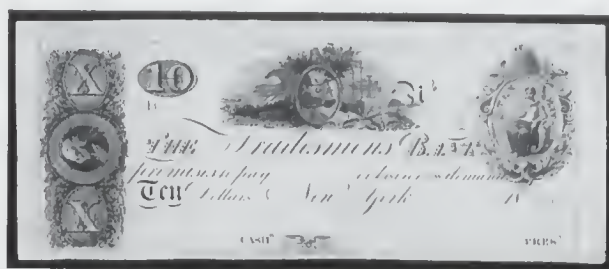 X 10
THE Tradesmens Bank
promises to pay or bearer on demand
Ten Dollars New York 18
X
CASHR PREST